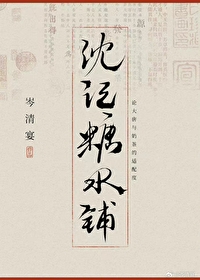 论大唐与奶茶的适配度
沈记糖水铺
岑清宴